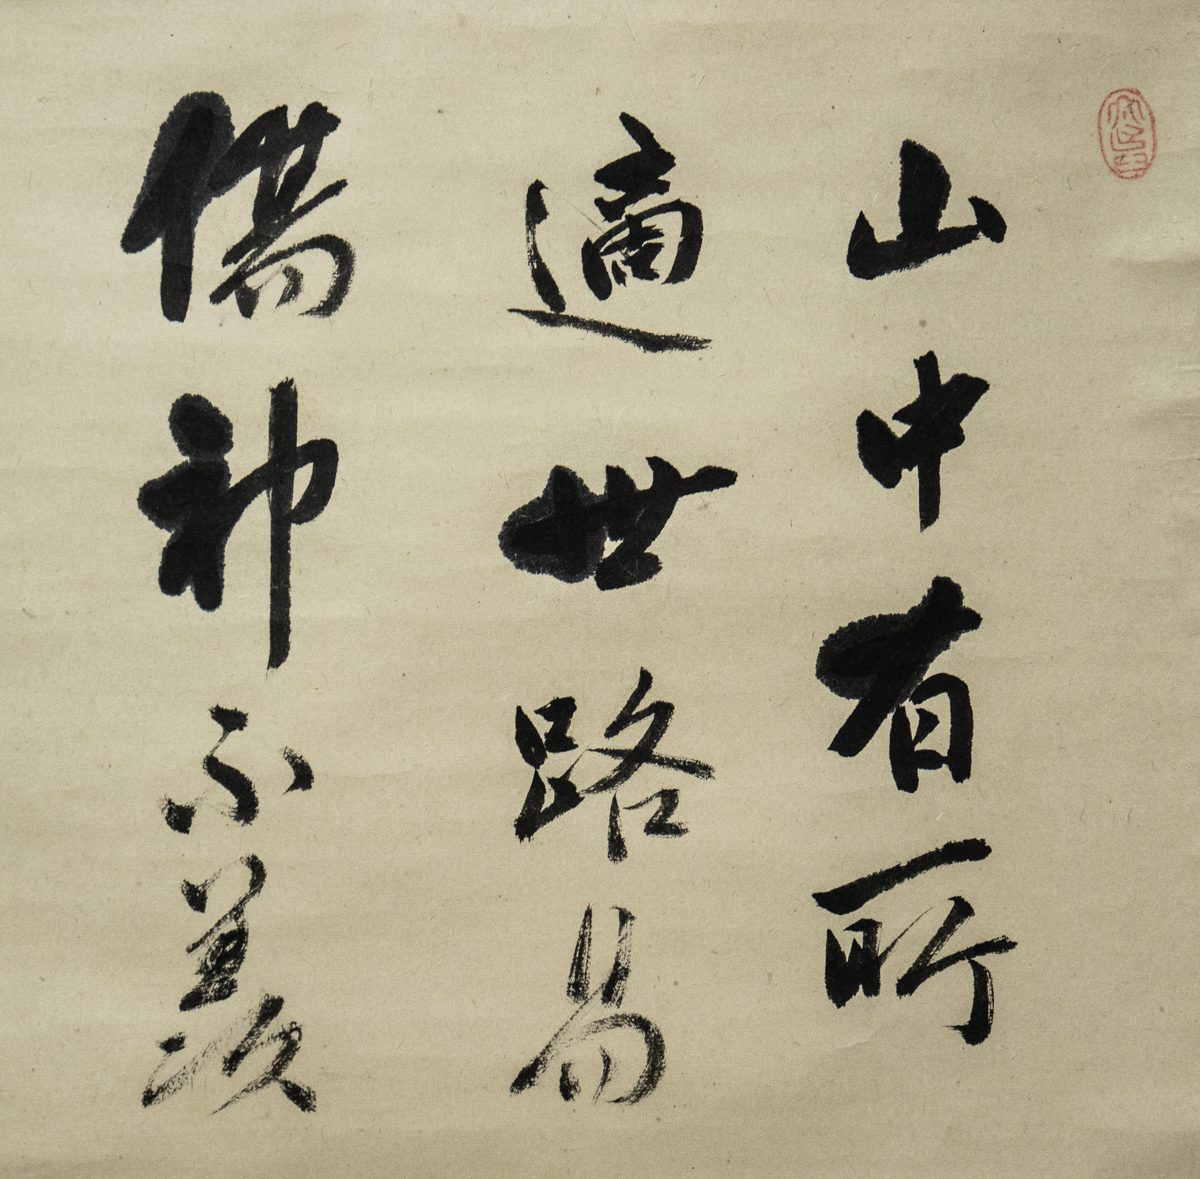 山中有所
適世路易
傷神不羨